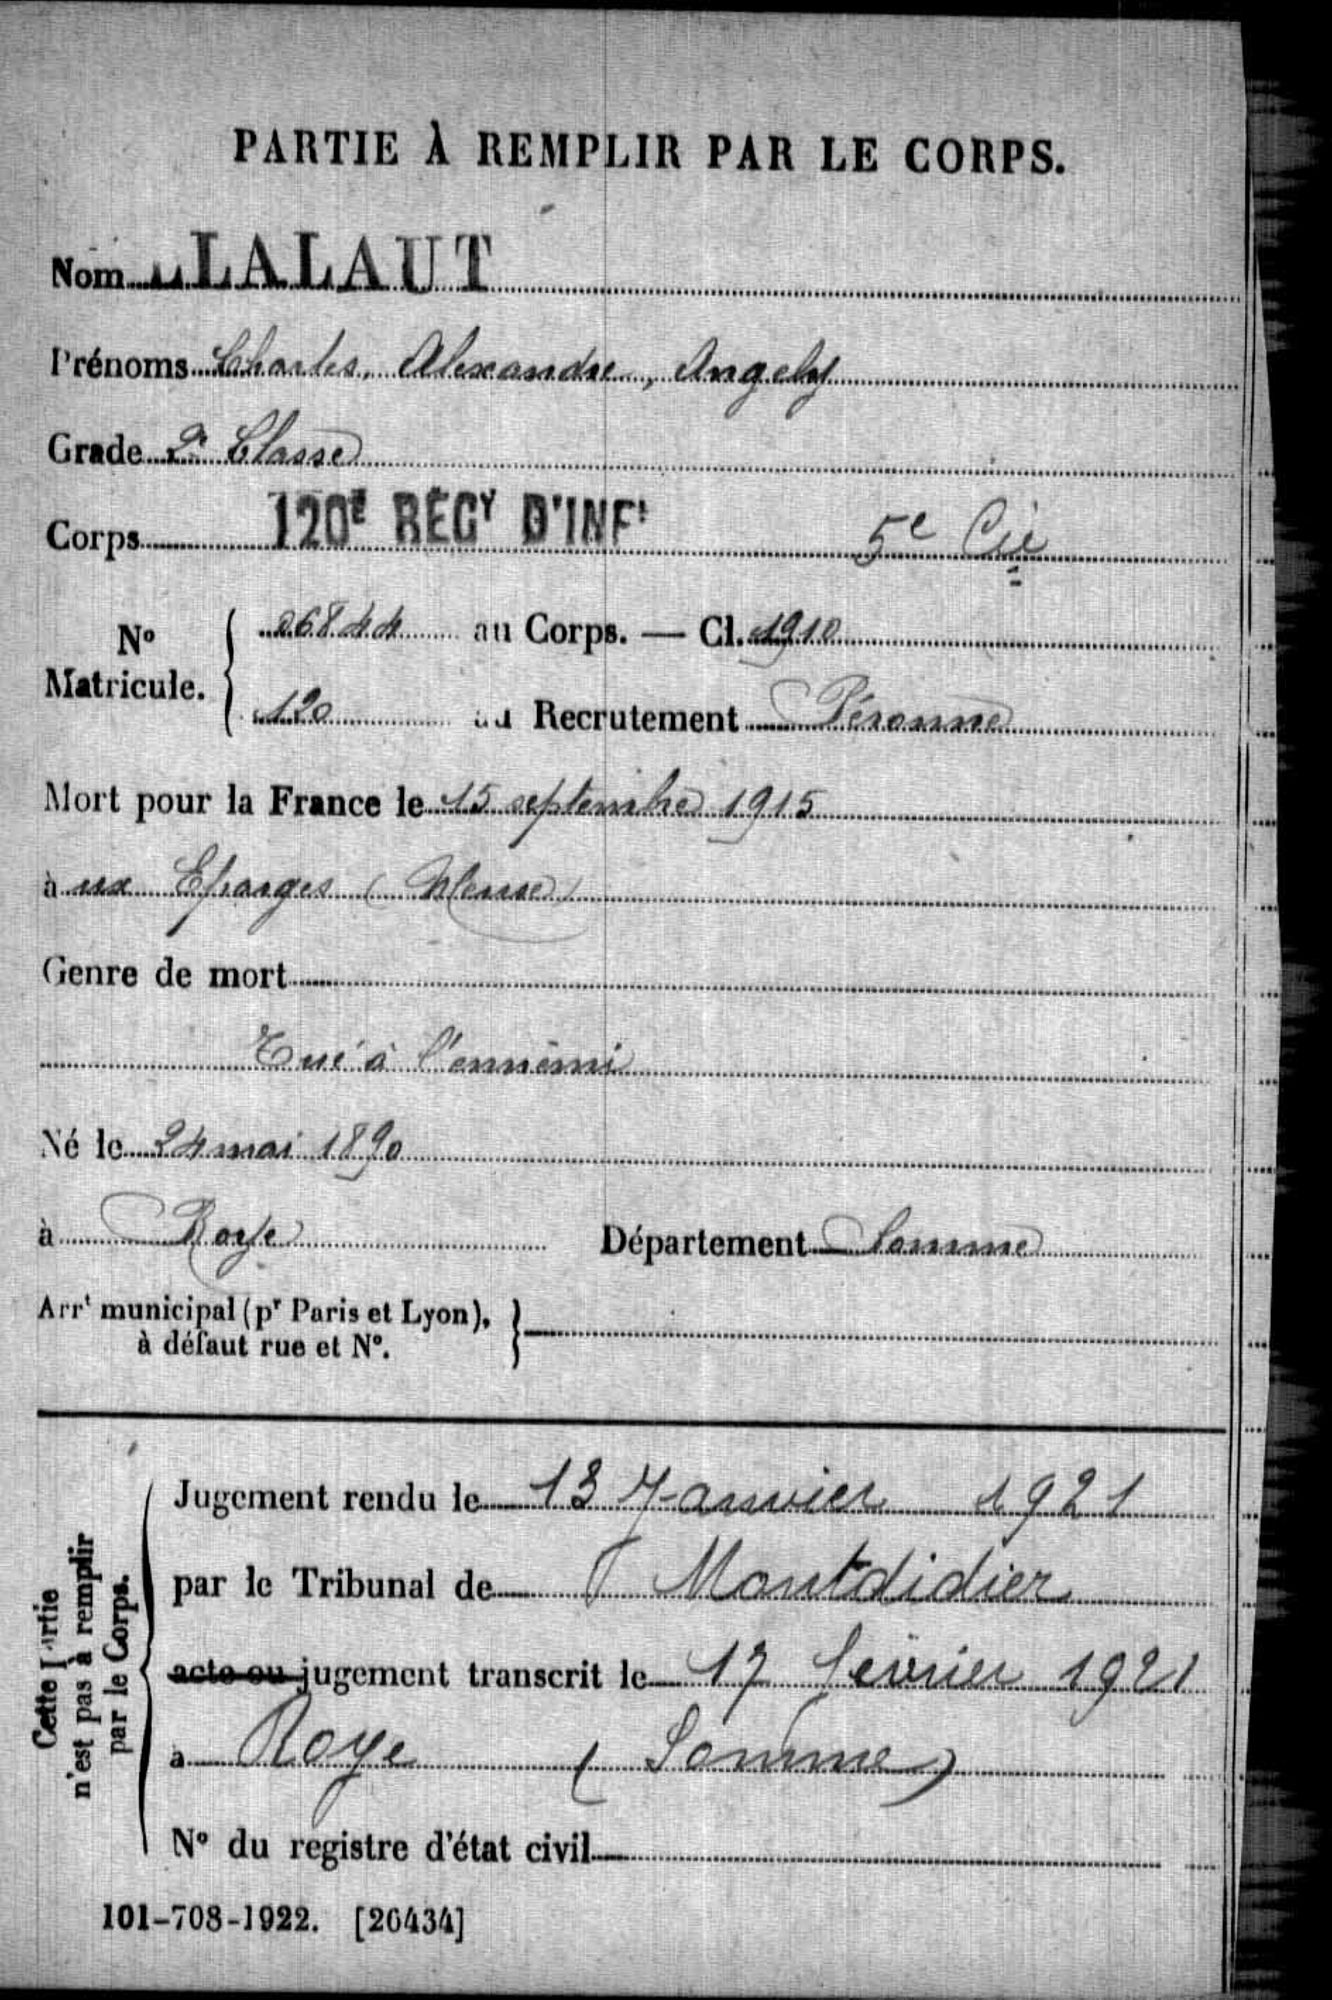 PARTIE À REMPLIR PAR LE CORPS.
Nom LALAUT
Prénoms Charles, Alexandre, Angely
Grade 2e Classe
Corps 120E REGT D'INFt 5e Cie
No Matricule. { 06844 au Corps. — Cl. 1910
120 au Recrutement Péronne
Mort pour la France le 15 septembre 1915
à ux Eparges (Meuse)
Genre de mort
Tué à l'ennemi
Né le 24 mai 1890
à Roye Département Somme
Arrt municipal (pr Paris et Lyon), }
à défaut rue et No.
Cette Partie
n'est pas à remplir
par le Corps.
Jugement rendu le 13 Janvier 1921
par le Tribunal de Montdidier
acte ou jugement transcrit le 17 février 1921
à Roye (Somme)
No du registre d'état civil
101-708-1922. [26434]